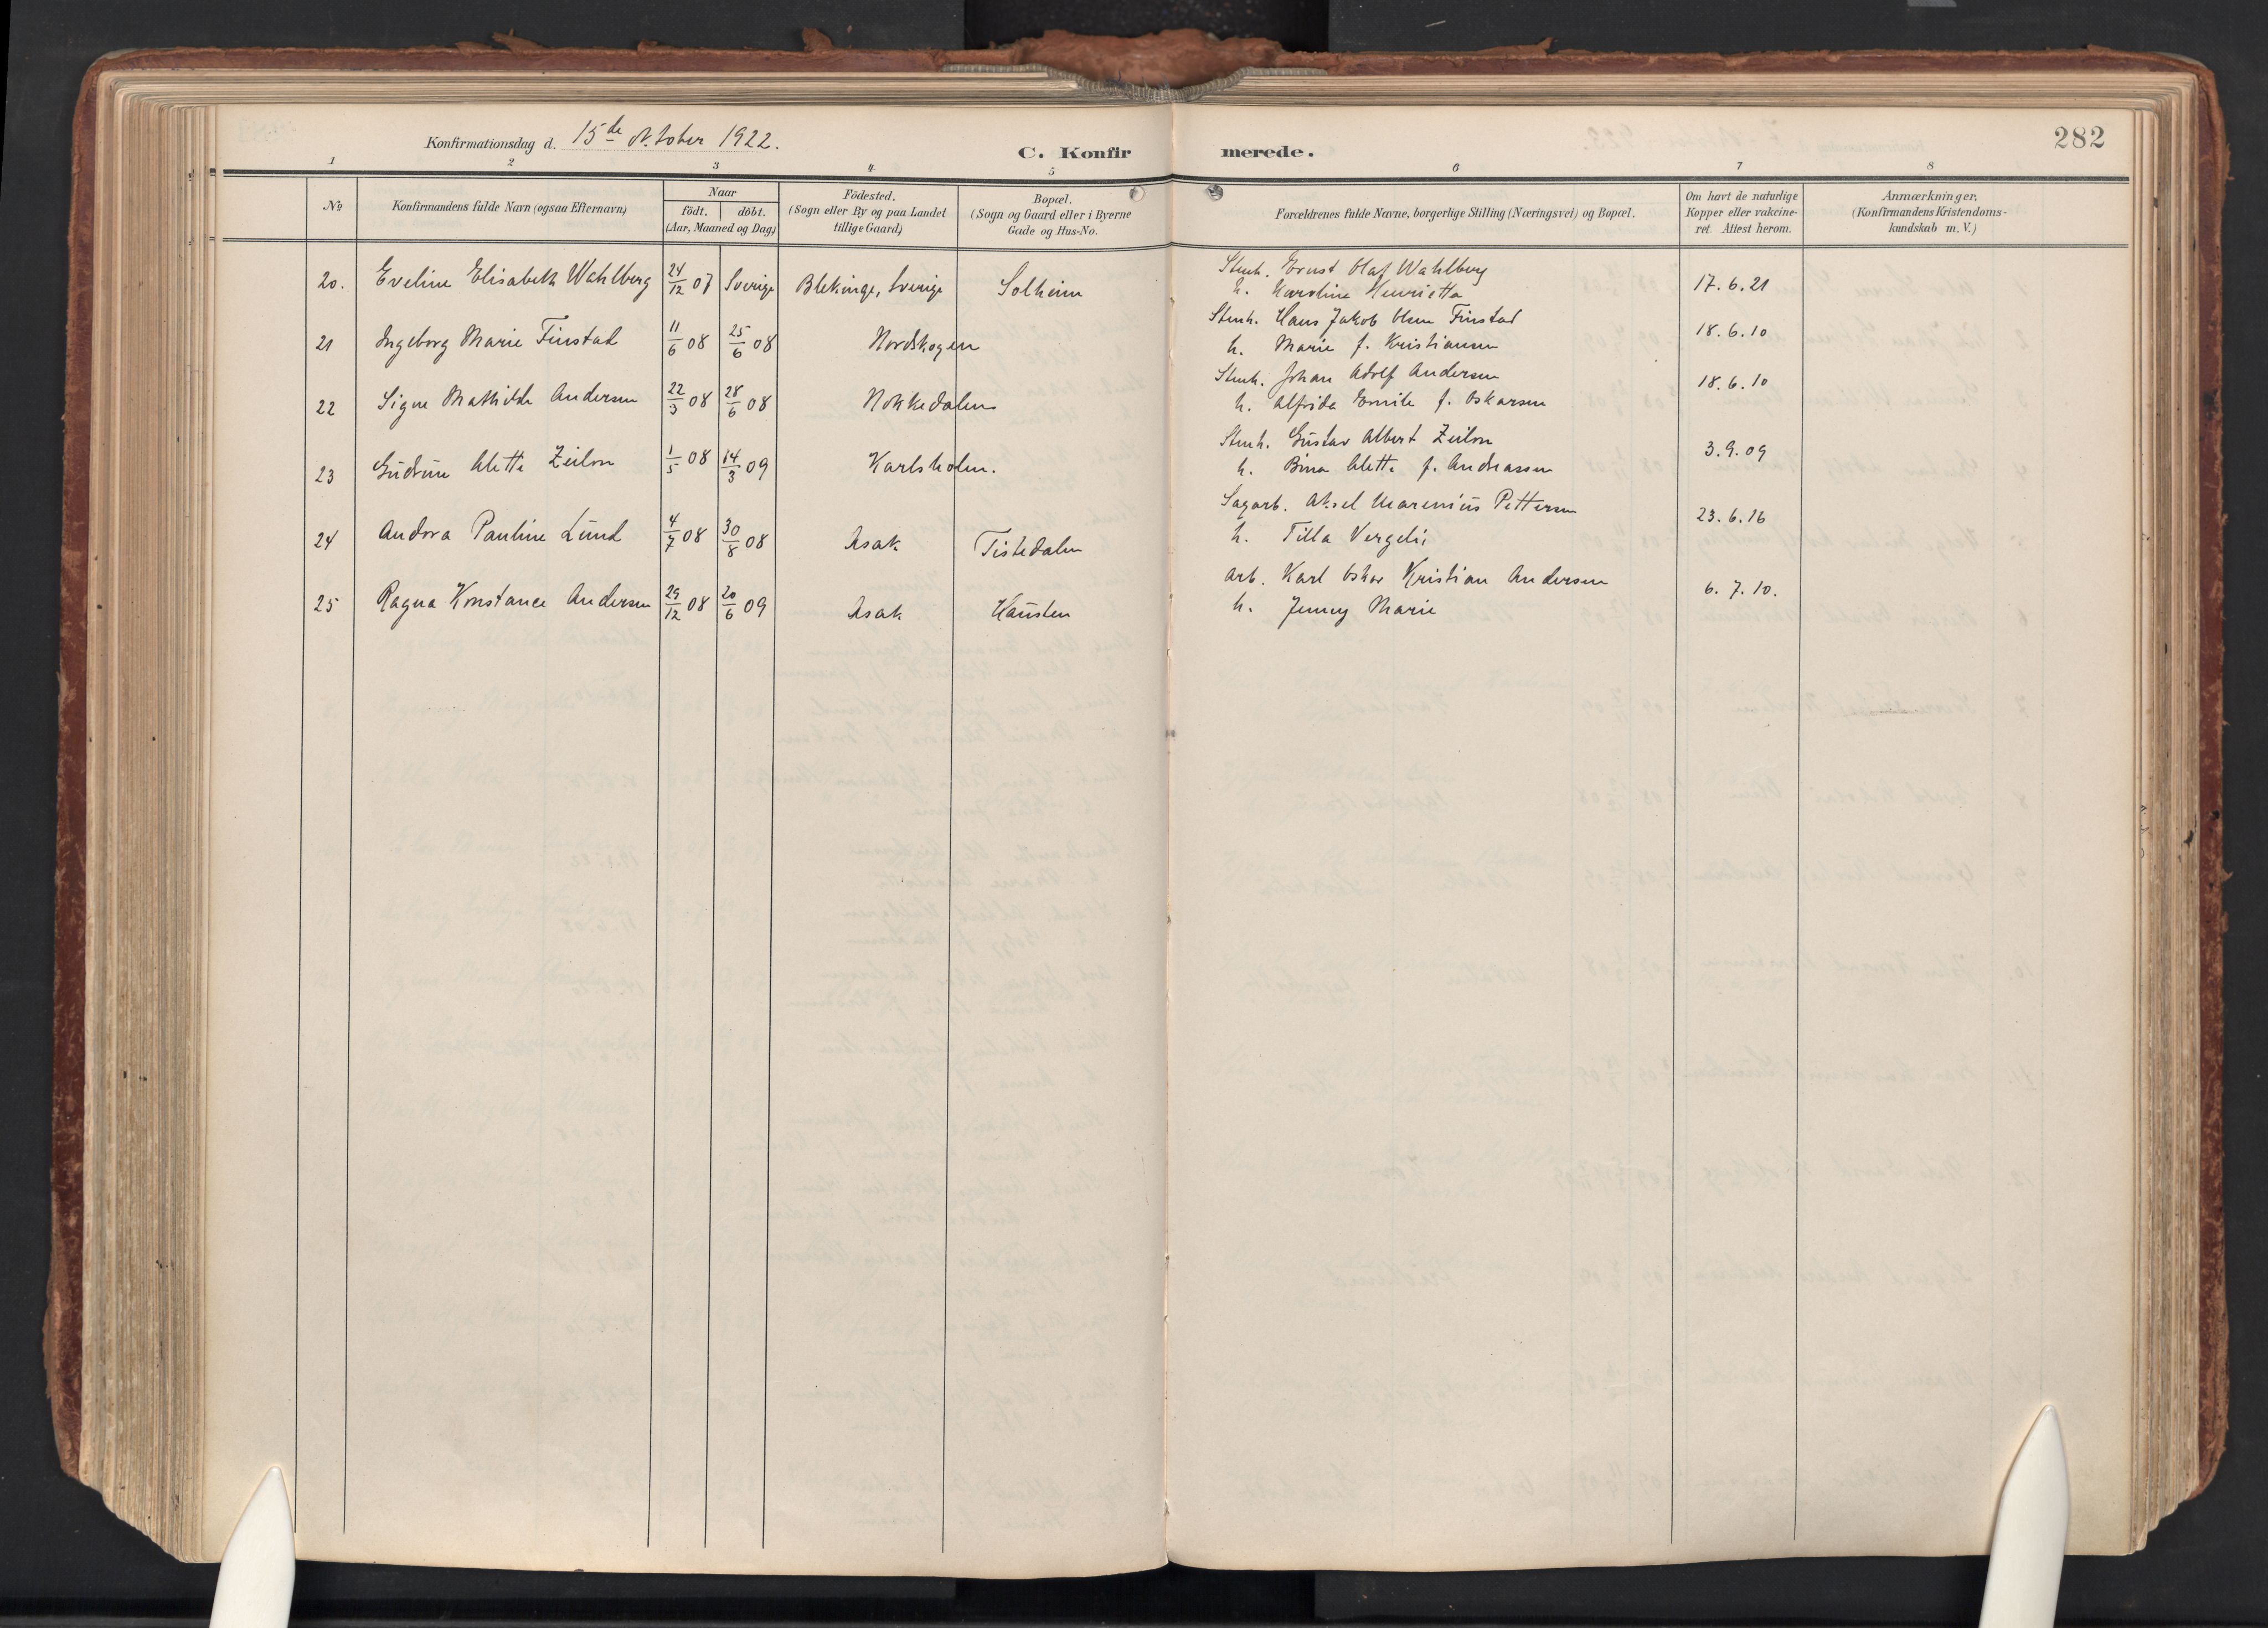 Konfirmationsdag d. 15de Oktober 1922.
C. Konfir merede. 282
1 2 3 4 5 6 7 8
№
Konfirmandens fulde Navn (ogsaa Efternavn)
Naar
födt. döbt.
(Aar, Maaned og Dag)
Födested.
(Sogn eller By og paa Landet
tillige Gaard)
Bopæl.
(Sogn og Gaard eller i Byerne
Gade og Hus-No.
Forældrenes fulde Navne, borgerlige Stilling (Næringsvei) og Bopæl.
Om havt de naturlige
Kopper eller vakcine-
ret. Attest herom.
Anmærkninger,
(Konfirmandens Kristendoms-
kundskab m. V.)
20. Eveline Elisabeth Wahlberg 24/12 07 Sverige Blekinge, Sverige Solheim Stenh. Ernst Olaf Wahlberg 17.6.21
h. Karoline Henrietta
21 Ingeborg Marie Finstad 11/6 08 25/6 08 Nordskogen Stenh. Hans Jakob Olsen Finstad 18.6.10
h. Marie f. Kristiansen
22 Signe Mathilde Andersen 22/3 08 28/6 08 Nokkedalen Stenh. Johan Adolf Andersen 18.6.10
h. Alfrida Emilie f. Oskarsen
23 Gudrun Alette Zeilon 1/5 08 14/3 09 Karlsholm. Stenh. Gustav Albert Zeilon 3.9.09
h. Bina Alette f. Andreassen
24 Andora Pauline Lund 4/7 08 30/8 08 Asak Tistedalen Sagarb. Aksel Marenius Pettersen 23.6.16
h. Tilla Vergeli
25 Ragna Konstance Andersen 29/12 08 20/6 09 Asak Hausten Arb. Karl Oskar Kristian Andersen 6.7.10.
h. Jenny Marie